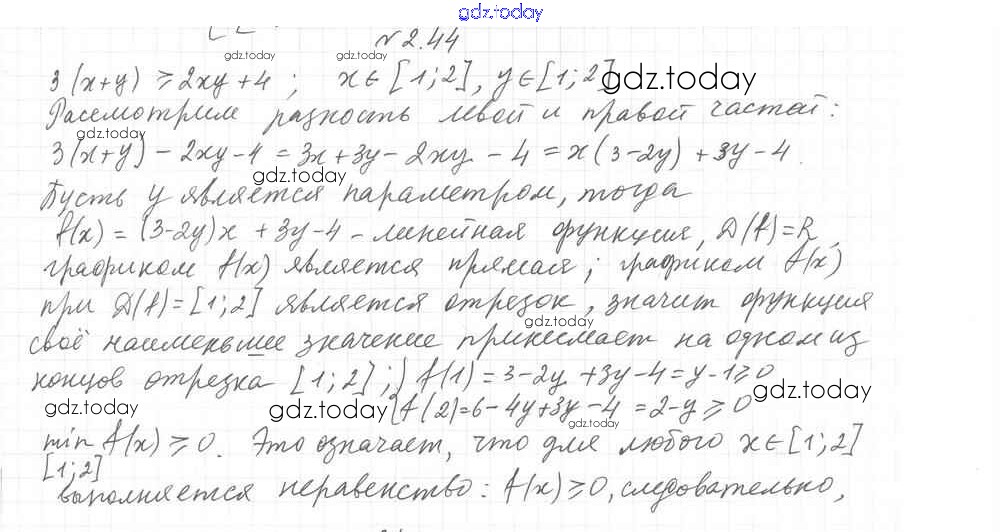 gdz.today
№ 2.44
gdz.today gdz.today
3(x+y) ≥ 2xy+4; x∈[1;2], y∈[1;2] gdz.today
Рассмотрим разность левой и правой частей:
gdz.today
3(x+y) - 2xy-4 = 3x+3y-2xy-4 = x(3-2y)+3y-4.
gdz.today
Пусть y является параметром, тогда
f(x) = (3-2y)x + 3y-4 - линейная функция, D(f)=R,
графиком f(x) является прямая; графиком f(x)
при D(f)=[1;2] является отрезок, значит функция
gdz.today
своё наименьшее значение принимает на одном из
концов отрезка [1;2]; f(1)=3-2y+3y-4=y-1≥0
gdz.today gdz.today gdz.today
f(2)=6-4y+3y-4=2-y≥0
min f(x) ≥ 0. Это означает, что для любого x∈[1;2]
[1;2]
gdz.today
выполняется неравенство: f(x)≥0, следовательно,